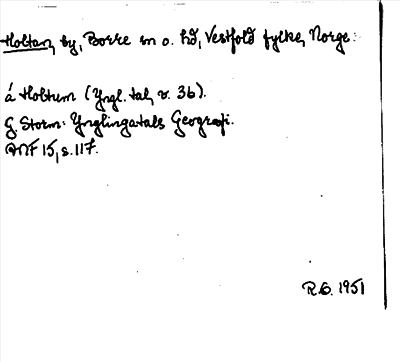 Holtan, by, Borre sn o. hd, Vestfold fylke, Norge:
á Holtum (Yngl. tal, v. 36).
G. Storm: Ynglingatals Geografi.
ANF 15, s. 117.
R.E. 1951